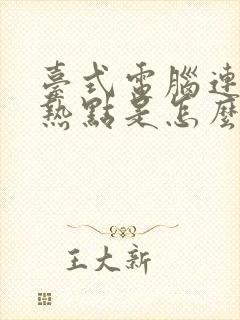 臺式電腦連
熱點是怎麼
王大新